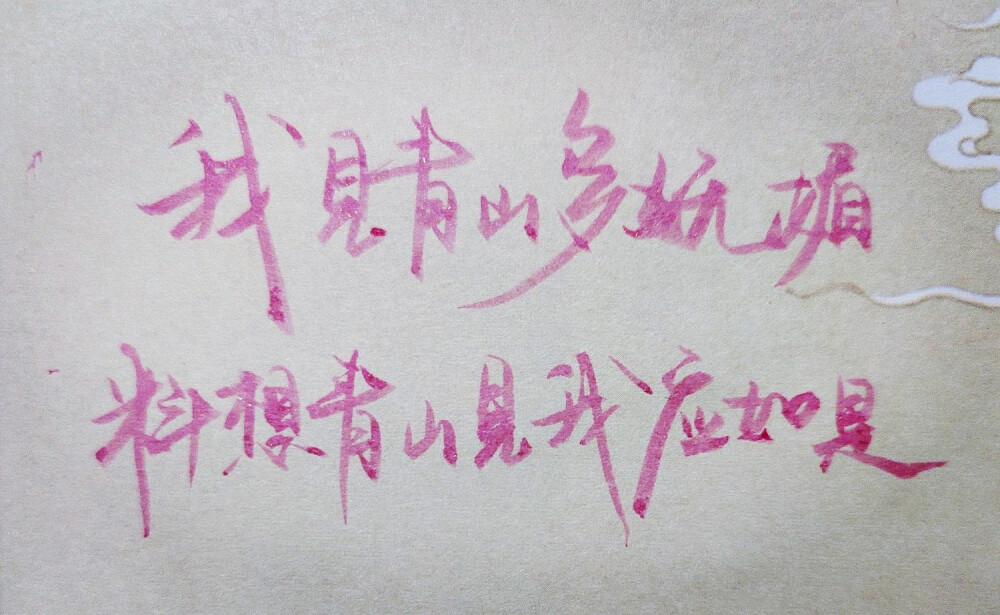 我見青山多妩媚
料想青山見我应如是